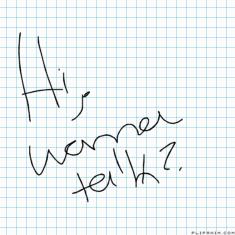 Hi,
wanna
talk?
FLIPANIM.COM